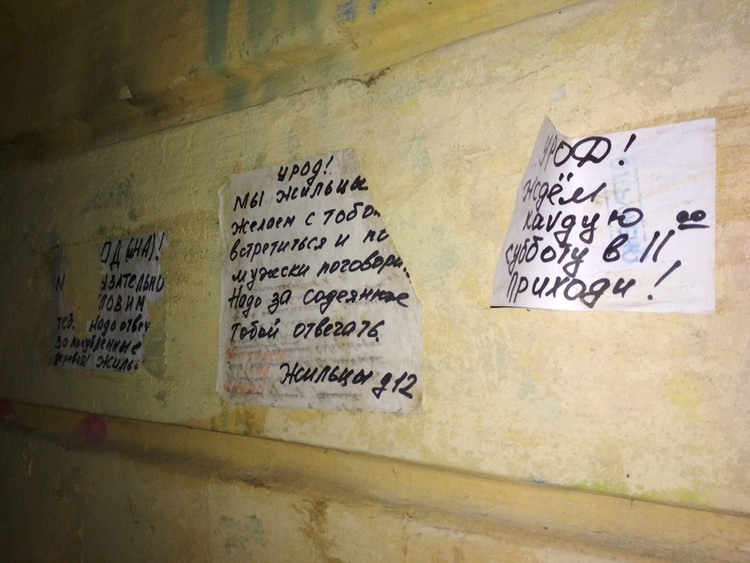 ОД(ИНА)!
УЗАТЕЛЬНО
ЛОВИМ
ТЕБ. НАДО ОТВЕЧ
ЗА ПОГУБЛЕННЫЕ
ЖИЛЬ
УРОД!
МЫ ЖИЛЬЦЫ
ЖЕЛАЕМ С ТОБО
ВСТРЕТИТЬСЯ И ПО
МУЖСКИ ПОГОВОРИ
НАДО ЗА СОДЕЯННОЕ
ТОБОЙ ОТВЕЧАТЬ.
ЖИЛЬЦЫ Д12
УРОД!
ЖДЁМ
КАЖДУЮ
СУББОТУ В 11 ⁰⁰
ПРИХОДИ!